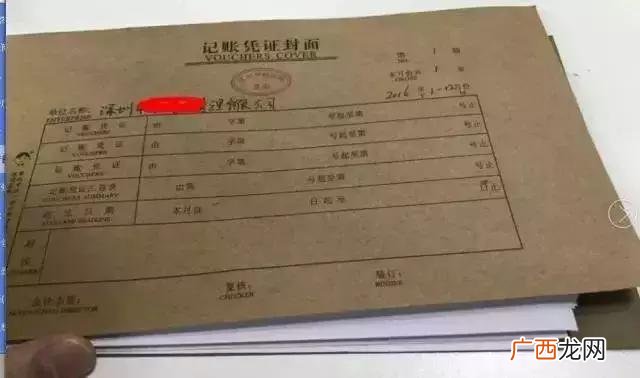 记账凭证封面
VOUCHERS COVER
第 1 册
本月合共 1 册
2016年1-12月份
单位名称: 深圳市 管理有限公司
ENTERPRISE
记账凭证 由 字第 号起至第 号止
VOUCHERS
记账凭证 由 字第 号起至第 号止
VOUCHERS
记账凭证 由 字第 号起至第 号止
VOUCHERS
记账凭证汇总表 由第 号起至第 号止
VOUCHERS SUMMARY
本月自 日起至 日止
附注
会计主管:
复核:
CHECKER
装订:
BINDER
广西龙网